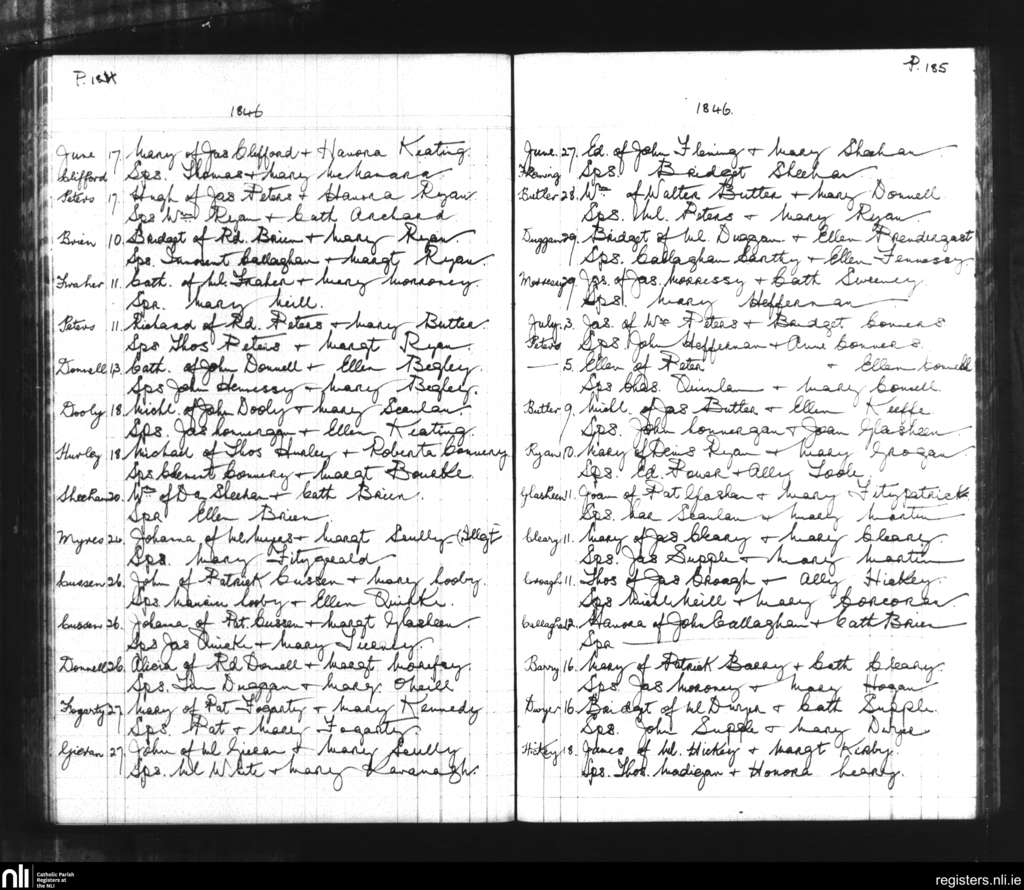 P. 184
1846
June 17 Mary of Jas Clifford + Hanora Keating.
Clifford Sps. Thomas + Mary McNamara
Peters 17. Hugh of Jas Peters + Hanora Ryan
Sps Wm Ryan + Cath
Brien 10. Bridget of Rd. Brien + Mary Ryan.
Sps. Innocent Callaghan + Margt Ryan.
Fraher 11. Cath. of Ml. Fraher + Mary Moroney
Spr. Mary Neill.
Peters 11. Richard of Rd. Peters + Mary Butler
Sps Thos Peters + Margt Ryan
Donnell 13. Cath. of John Donnell + Ellen Begley
Sps John Hennessy + Mary Begley.
Dooly 18. Michl. of John Dooly + Mary Scanlan
Sps. Jas Lonnergan + Ellen Keating
Hurley 18. Michael of Thos Hurley + Roberta Connery
Sps Clement Connery + Margt Bourke
Sheehan 20. Wm of D. Sheehan + Cath Brien.
Spr Ellen Brien
Myres 26. Johanna of Ml Myres + Margt Scully (Illegt
Sps. Mary Fitzgerald
Cussen 26. John of Patrick Cussen + Mary Looby.
Sps Looby + Ellen Quirke.
Cussen 26. Johana of Pat. Cussen + Margt Glasheen
Sps Jas Quirke + Mary Tierney.
Donnell 26. Alicia of Rd Donnell + Margt
Sps. Tim Duggan + Mary. ONeill
Fogarty 27. Mary of Pat Fogarty + Mary Kennedy
Sps. Pat + Mary Fogarty
Gieran 27. John of Ml Gieran + Mary Scully
Sps. Ml White + Mary Kavanagh.
P. 185
1846.
June. 27. Ed. of John Fleming + Mary Sheehan
Fleming Sps. Bridget Sheehan
Butler 28. Wm of Walter Butler + Mary Donnell
Sps. Ml. Peters + Mary Ryan
Duggan 29. Bridget of Ml Duggan + Ellen Prendergast
Sps. Callaghan Carthy + Ellen Fennessy
Morrissy 29. Jas. of Jas Morrissy + Cath Sweeney
Sps. Mary Heffernan
July. 3. Jas. of Wm Peters + Bridget Connors
Peters Sps. John Heffernan + Anne Connors.
— 5. Ellen of Peter + Ellen Connell
Sps Chas. Quinlan + Mary Connell
Butler 9. Michl. of Jas Butler + Ellen Keeffe
Sps. John Lonnergan + Joan Glasheen
Ryan 10. Mary of Denis Ryan + Mary Grogan
Sps. Ed. Power + Ally Toole
Glasheen 11. Joan of Pat Glashen + Mary Fitzpatrick
Sps. Scanlan + Mary Martin
Cleary 11. Mary of Jas Cleary + Mary Cleary
Sps. Jas Supple + Mary Martin
Croagh 11. Thos of Jas Croagh + Ally Hickey.
Sps Michl Neill + Mary Corcoran.
Callaghan 12. Hanora of John Callaghan + Cath Brien
Spr —
Barry 16. Mary of Patrick Barry + Cath Cleary
Sps Jas Moroney + Mary Hogan
Dwyer 16. Bridget of Ml Dwyer + Cath Supple.
Sps. John Supple + Mary Dwyer
Hickey 18. James of Ml. Hickey + Margt Kirby.
Sps. Thos. Madigan + Honora Leary.
nli Catholic Parish Registers at the NLI
registers.nli.ie